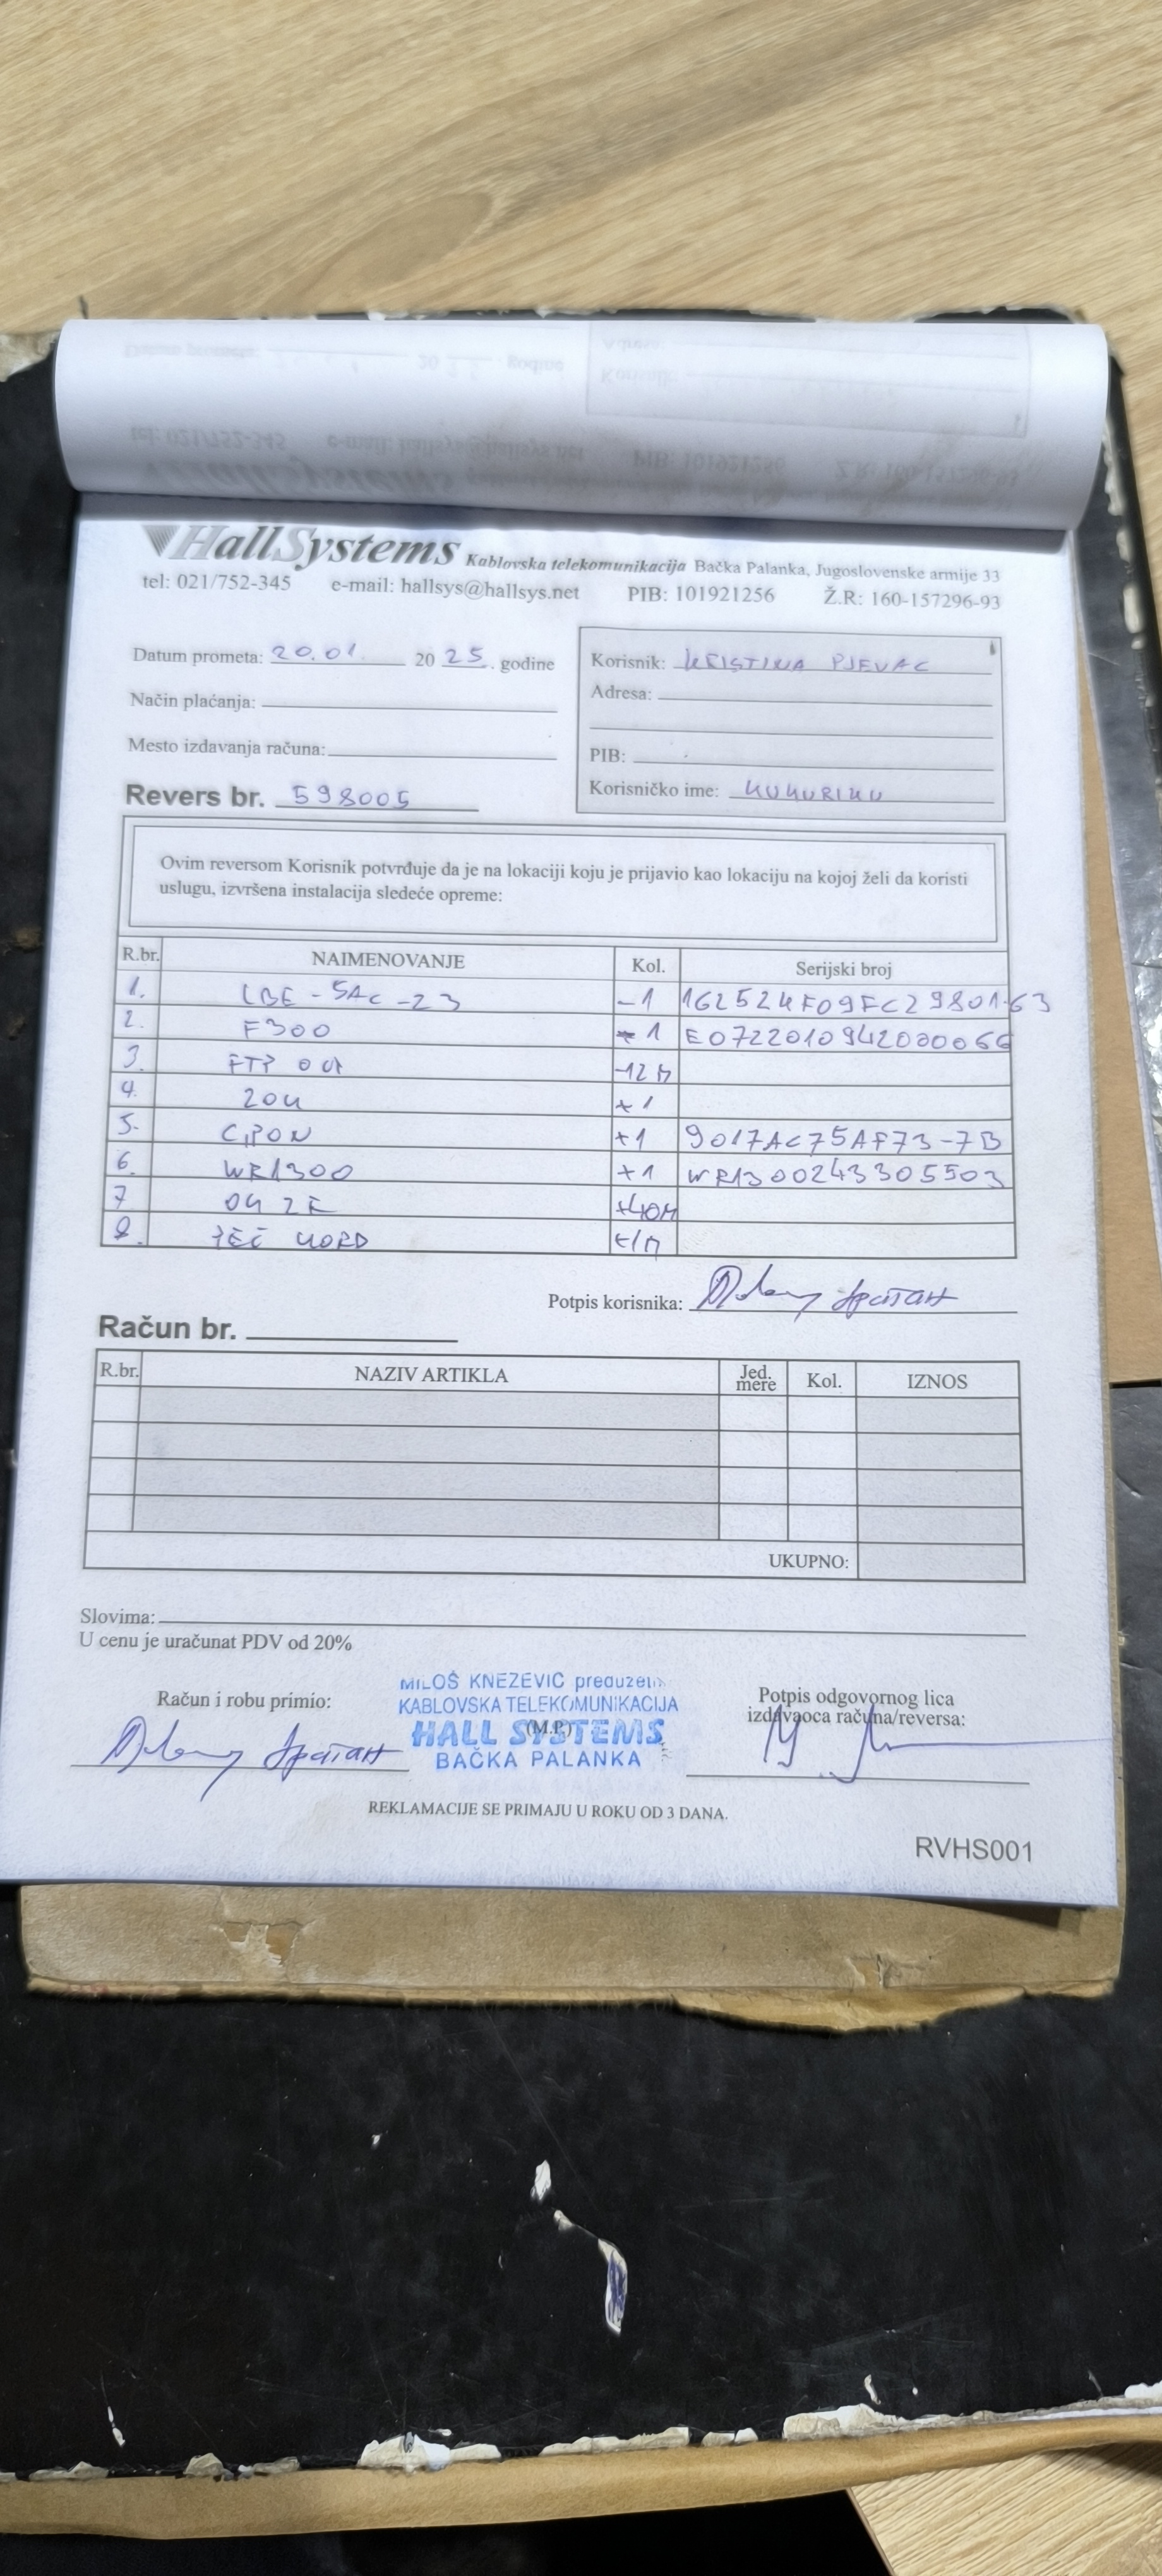 HallSystems Kablovska telekomunikacija Bačka Palanka, Jugoslovenske armije 33
tel: 021/752-345 e-mail: hallsys@hallsys.net PIB: 101921256 Ž.R: 160-157296-93
Datum prometa: 20.01. 20 25. godine
Način plaćanja:
Mesto izdavanja računa:
Revers br. 598005
Korisnik: KRISTINA PJEVAC
Adresa:
PIB:
Korisničko ime: KUKURIKU
Ovim reversom Korisnik potvrđuje da je na lokaciji koju je prijavio kao lokaciju na kojoj želi da koristi
uslugu, izvršena instalacija sledeće opreme:
R.br. NAIMENOVANJE Kol. Serijski broj
1. LBE-5AC-23 -1 162524F09FC2980163
2. F300 1 E0722010942000066
3. FTP OUT -12M
4. 20U +1
5. GPON +1 9017AC75AF73-7B
6. WR1300 +1 WR1300243305503
7 +40M
8. PEČ KORD +1M
Potpis korisnika:
Račun br.
R.br. NAZIV ARTIKLA Jed. mere Kol. IZNOS
UKUPNO:
Slovima:
U cenu je uračunat PDV od 20%
Račun i robu primio:
MILOŠ KNEZEVIC preduzetn
KABLOVSKA TELEKOMUNIKACIJA
HALL SYSTEMS
(M.P.)
BAČKA PALANKA
Potpis odgovornog lica
izdavaoca računa/reversa:
REKLAMACIJE SE PRIMAJU U ROKU OD 3 DANA.
RVHS001